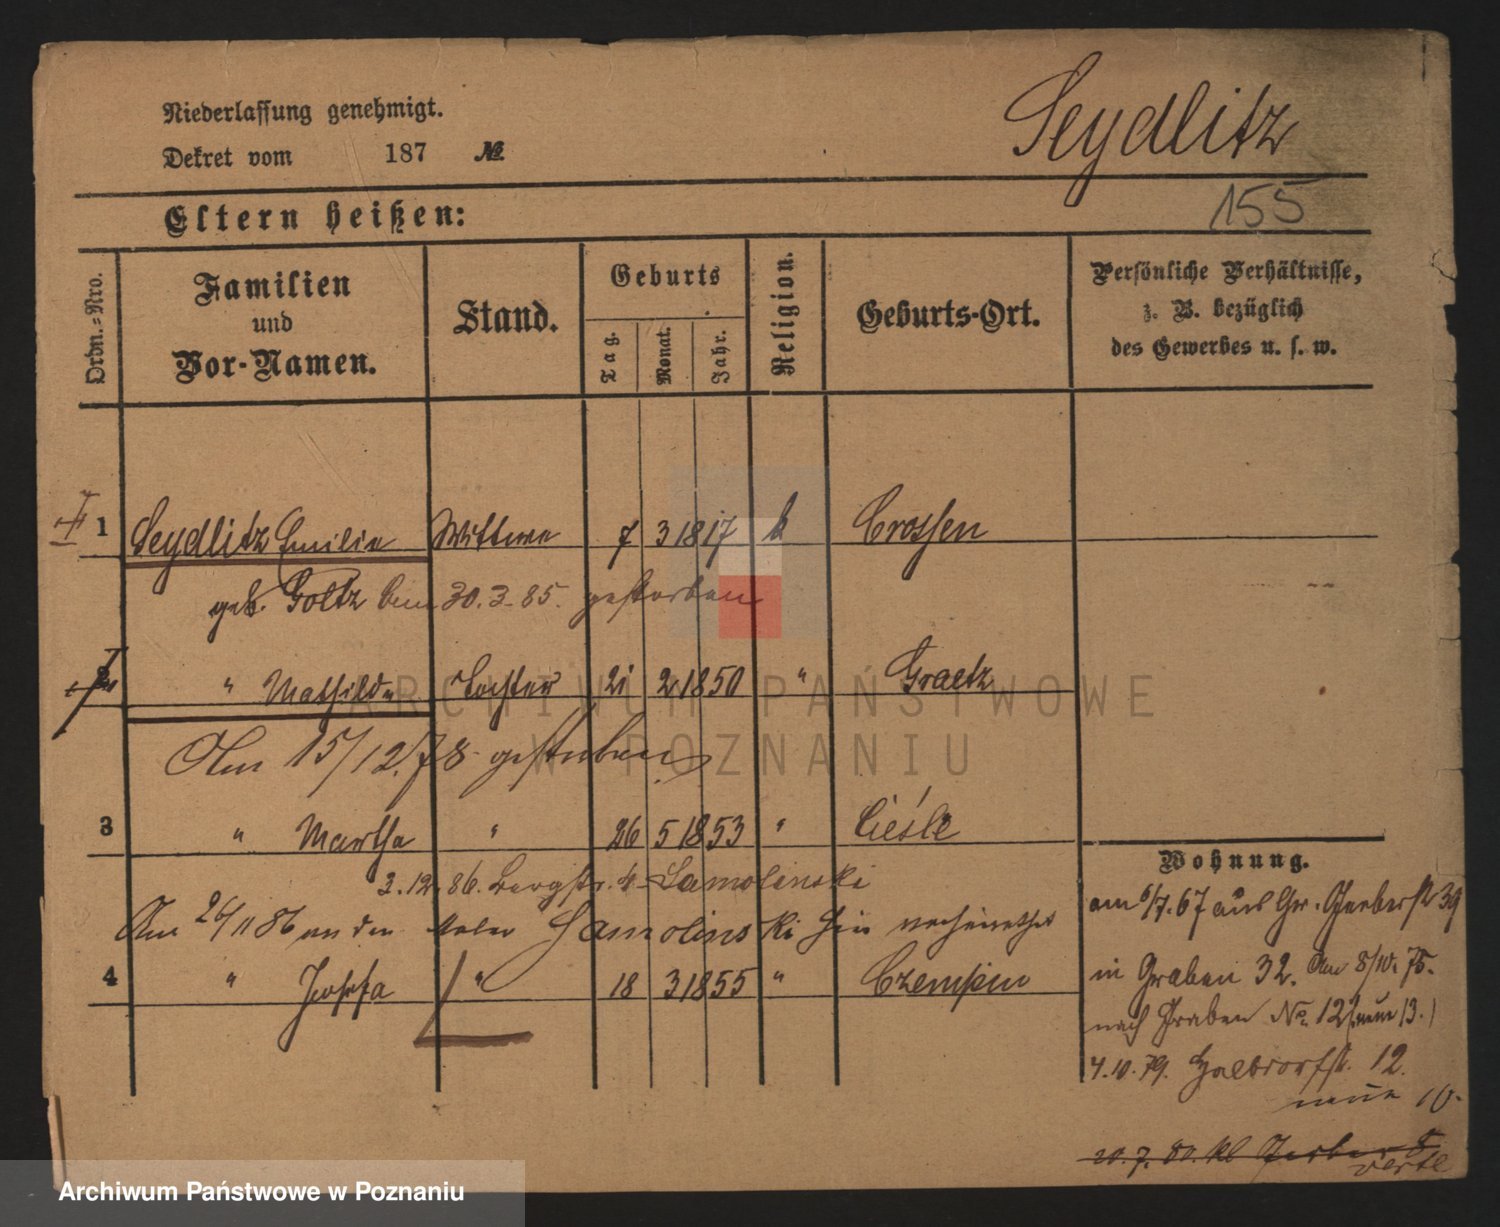 Niederlassung genehmigt.
Seydlitz
Dekret vom 187 №
155
Eltern heißen:
Ordn.=Nro.
Familien
und
Vor-Namen.
Stand.
Geburts
Tag.
Monat.
Jahr.
Religion.
Geburts-Ort.
Persönliche Verhältnisse,
z. B. bezüglich
des Gewerbes u. s. w.
1 Seydlitz Emilie Wittwe 7 3 1817 k Crossen
geb. Goltz am 30.3.85. gestorben
2 " Mathilde Tochter 21 2 1850 " Graetz
Am 15/12.78 gestorben
3 " Martha " 26 5 1853 " Cieśle
3.12.86. Bergstr. 4 Samolinski
Am 26/11 86 an den Samolinski hier verheirathet
4 " Josefa " 18 3 1855 " Czempin
Wohnung.
am 6/7.67 aus Gr. Gerberstr 39
in Graben 32. Am 8/10. 75.
nach Graben No. 12 (neue 13.)
4.10.79. Halbdorfstr. 12.
neue 10.
20.7.80. kl Gerber 8
verte
ARCHIWUM PAŃSTWOWE
W POZNANIU
Archiwum Państwowe w Poznaniu